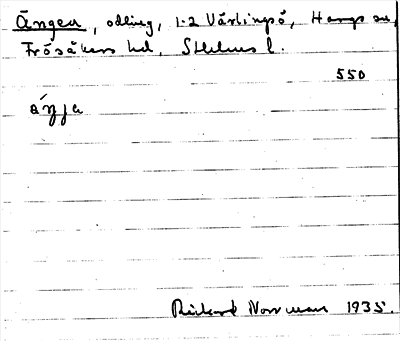 Ängen, odling, 1-2 Värlingsö, Hargs sn,
Frösåkers hd, Sthlms l.
550
äŋja
Rickard Norrman 1935.